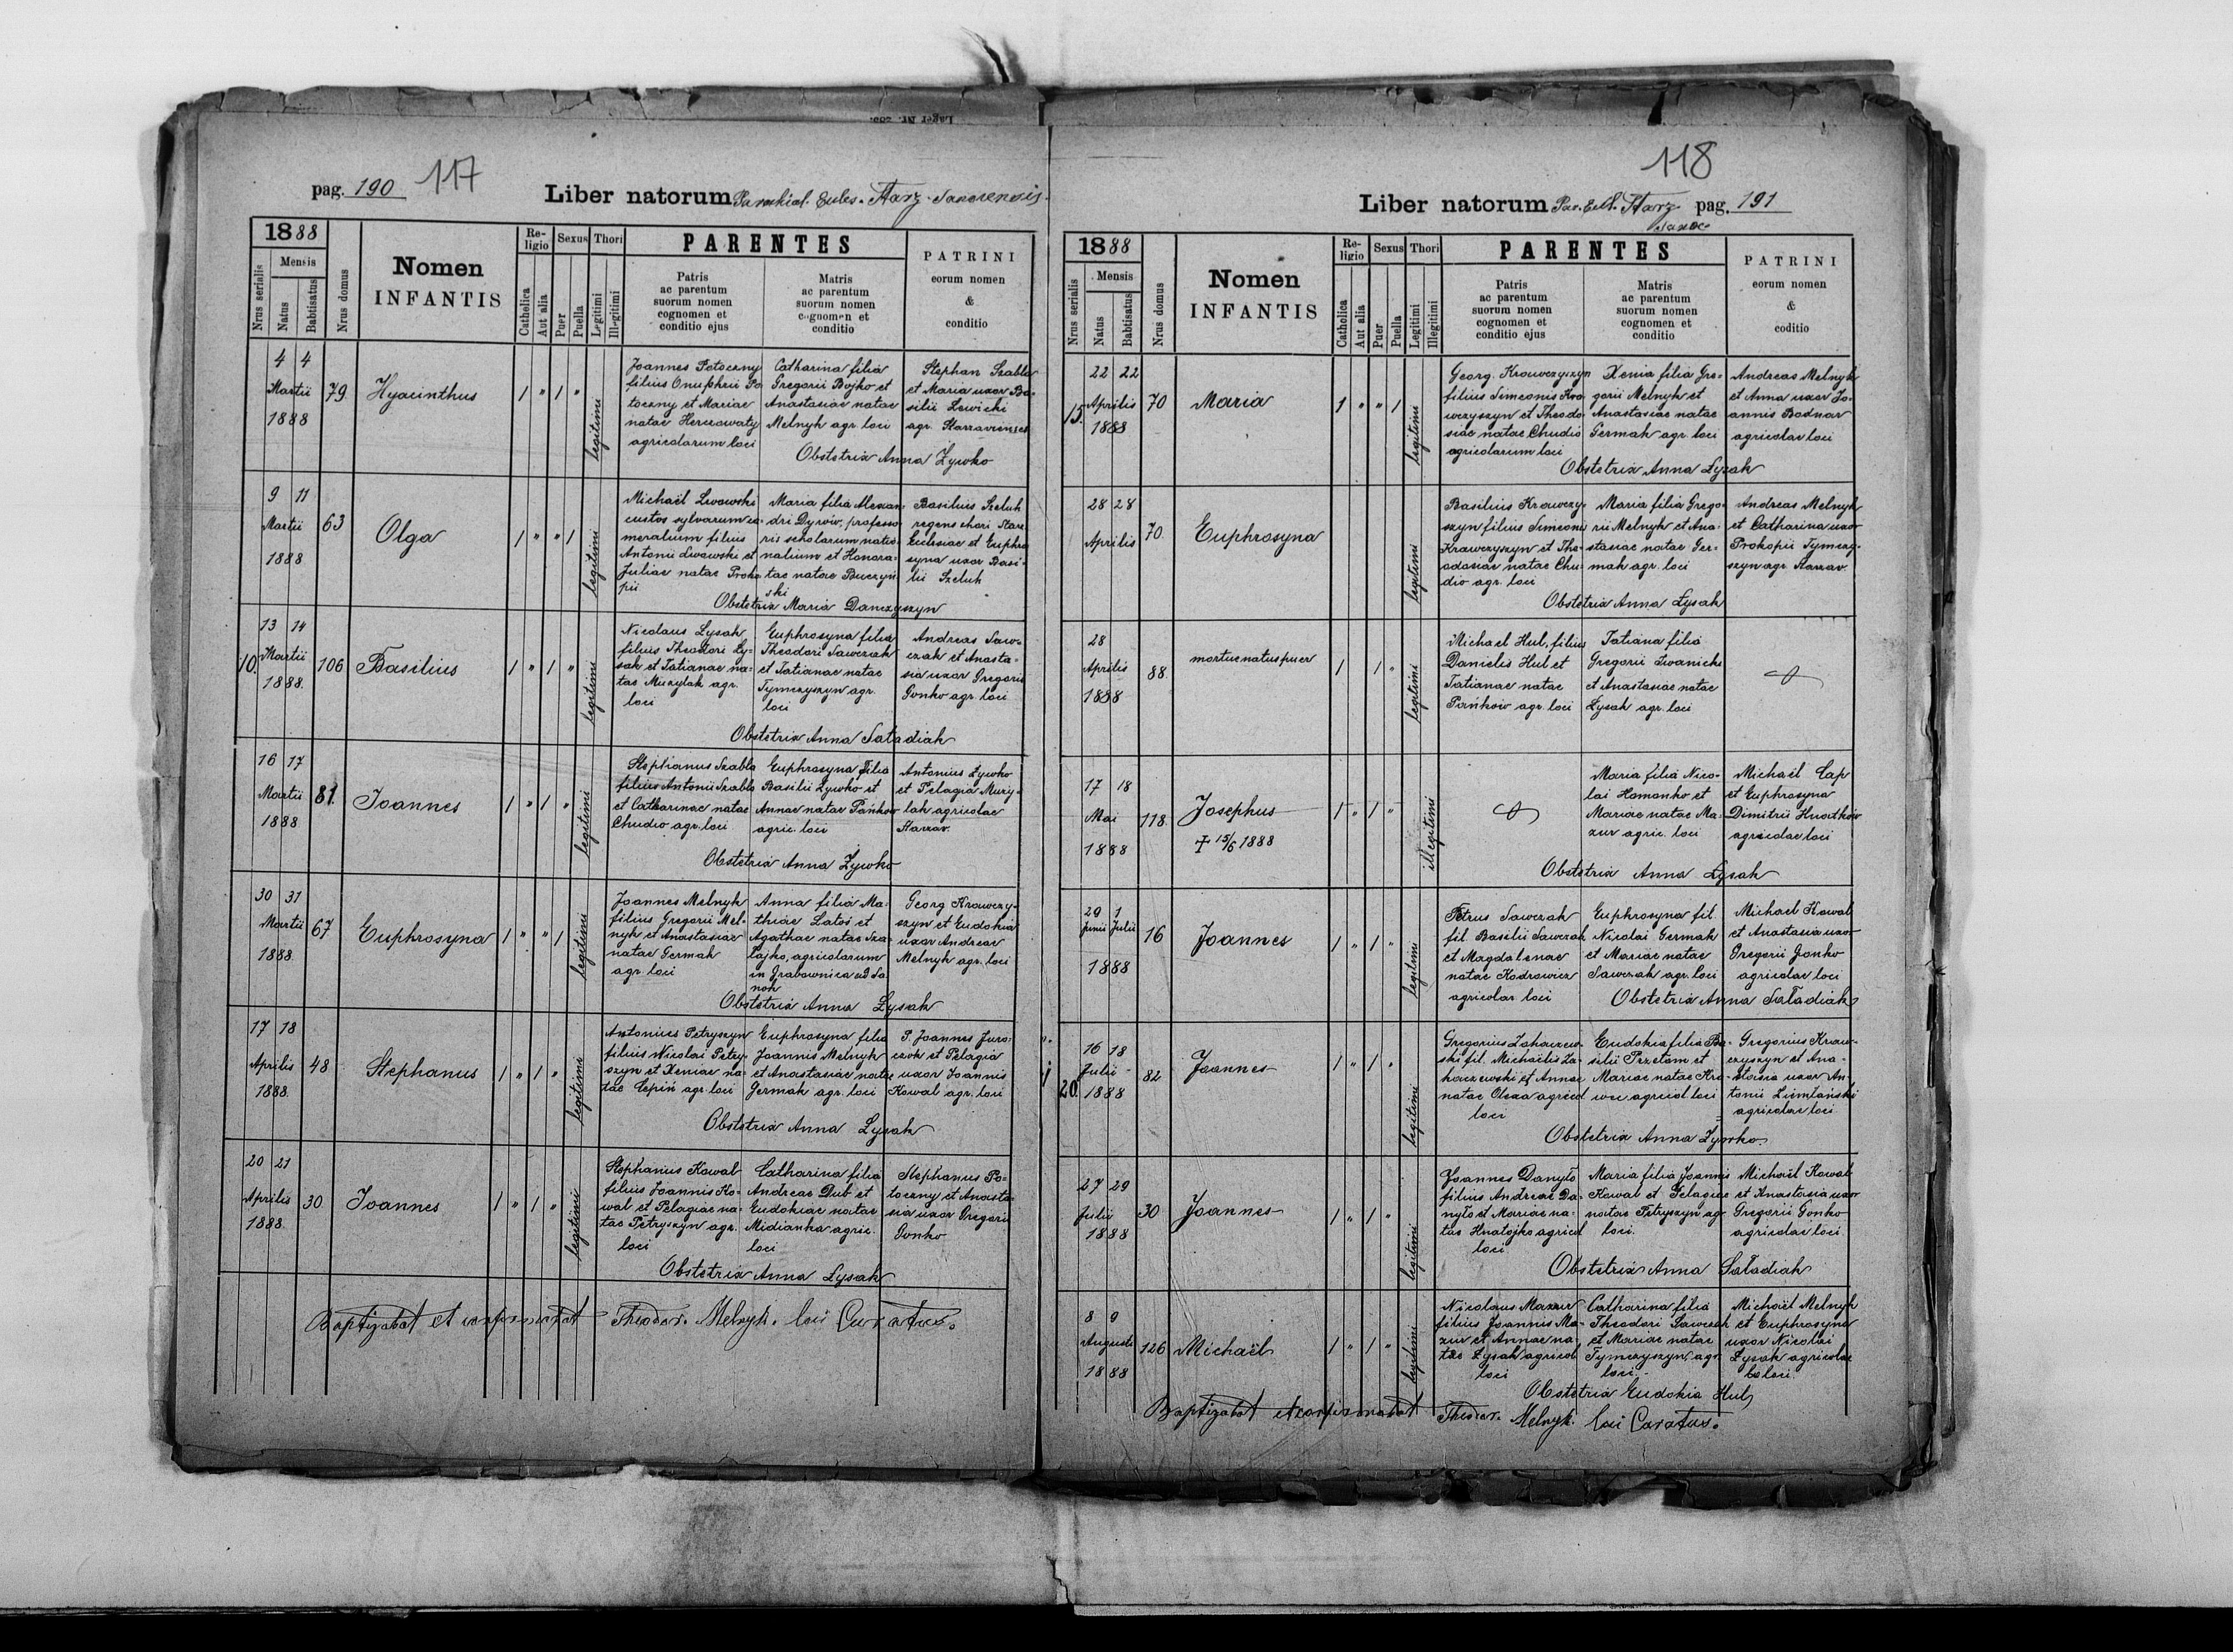 pag. 190 117
Liber natorum Parochial. Eccles. Starz.
1888
Nrus serialis
Mensis
Natus
Babtisatus
Nrus domus
Nomen
INFANTIS
Re-
ligio
Catholica
Aut alia
Sexus
Puer
Puella
Thori
Legitimi
Illegitimi
PARENTES
Patris
ac parentum
suorum nomen
cognomen et
conditio ejus
Matris
ac parentum
suorum nomen
cognomen et
conditio
PATRINI
eorum nomen
&
conditio
4 4
Martii
1888
79
Hyacinthus
1 " 1 "
legitimi
Joannes Potoczny
filius Onuphrii Po
toczny et Mariae
natae
agricolarum loci
Catharina filia
Gregorii Bojko et
Anastasiae natae
Melnyk agr. loci
Stephan Szabla
et Maria uxor Ba-
silii Lewicki
agr. Starzavienses
Obstetrix Anna Żywko
9 11
Martii
1888
63
Olga
1 " " 1
legitimi
Michaël Lwowski
custos sylvarum ca-
meralium filius
Antonii Lwowski et
Juliae natae Proko
pii
Maria filia Alexan-
dri Dyrów, professo
ris scholarum natio-
nalium et Honora-
tae natae Buczyń
ski
Basilius Szeluh
regens chori Starz.
Ecclesiae et Euphro
syna uxor Basi-
lii Szeluh
Obstetrix Maria Danczyszyn
10.
13 14
Martii
1888.
106
Basilius
1 " 1 "
legitimi
Nicolaus Lysak
filius Theodori Ly-
sak et Tatianae na-
tae Muzylak agr.
loci
Euphrosyna filia
Theodori Sawczak
et Tatianae natae
Tymczyszyn agr.
loci
Andreas Saw-
czak et Anasta-
sia uxor Gregorii
Gonko agr. loci
Obstetrix Anna Saładiak
16 17
Martii
1888
81.
Joannes
1 " 1 "
legitimi
Stephanus Szabla
filius Antonii Szabla
et Catharinae natae
Chudio agr. loci
Euphrosyna filia
Basilii Żywko et
Annae natae Pańkow
agric. loci
Antonius Żywko
et Pelagia Muzy-
lak agricolae
Starzav.
Obstetrix Anna Żywko
30 31
Martii
1888.
67
Euphrosyna
1 " " 1
legitimi
Joannes Melnyk
filius Gregorii Mel-
nyk et Anastasiae
natae Germak
agr. loci
Anna filia Ma-
thiae Latoś et
Agathae natae Sza-
łajko, agricolarum
in Grabownica ad Sa-
nok
Georg Krawczy-
szyn et Eudokia
uxor Andreae
Melnyk agr. loci
Obstetrix Anna Łysak
17 18
Aprilis
1888.
48
Stephanus
1 " 1 "
legitimi
Antonius Petryszyn
filius Nicolai Petry-
szyn et Xeniae na-
tae Cepiń agr. loci
Euphrosyna filia
Joannis Melnyk
et Anastasiae natae
Germak agr. loci
P. Joannes Jura-
czok et Pelagia
uxor Joannis
Kowal agr. loci
Obstetrix Anna Łysak
20 21
Aprilis
1888.
30
Joannes
1 " 1 "
legitimi
Stephanus Kowal
filius Joannis Ko-
wal et Pelagiae na-
tae Petryszyn agr.
loci
Catharina filia
Andreae Dub et
Eudokiae natae
Midianka agric.
loci
Stephanus Po-
toczny et Anasta-
sia uxor Gregorii
Gonko
Obstetrix Anna Lysak
Baptizabat et confirmabat Theodor. Melnyk. loci Curatus.
118
Liber natorum Par. Eccl. Starz. pag. 191
1888
Nrus serialis
Mensis
Natus
Babtisatus
Nrus domus
Nomen
INFANTIS
Re-
ligio
Catholica
Aut alia
Sexus
Puer
Puella
Thori
Legitimi
Illegitimi
PARENTES
Patris
ac parentum
suorum nomen
cognomen et
conditio ejus
Matris
ac parentum
suorum nomen
cognomen et
conditio
PATRINI
eorum nomen
&
coditio
15.
22 22
Aprilis
1888
70
Maria
1 " " 1
legitimi
Georg. Krawczyszyn
filius Simeonis Kra
wczyszyn et Theodo-
siae natae Chudio
agricolarum loci
Xenia filia Gre-
gorii Melnyk et
Anastasiae natae
Germak agr. loci
Andreas Melnyk
et Anna uxor Jo-
annis Bodnar
agricolae loci
Obstetrix Anna Łysak
28 28
Aprilis
70.
Euphrosyna
legitimi
Basilius Krawczy-
szyn filius Simeonis
Krawczyszyn et The-
odosiae natae Chu-
dio agr. loci
Maria filia Grego-
rii Melnyk et Ana-
stasiae natae Ger-
mak agr. loci
Andreas Melnyk
et Catharina uxor
Prokopii Tymczy-
szyn agr. Starzav.
Obstetrix Anna Łysak
28
Aprilis
1888
88.
mortue natus puer
1 1 "
legitimi
Michael Hul, filius
Danielis Hul et
Tatianae natae
Pańków agr. loci
Tatiana filia
Gregorii Iwanicki
et Anastasiae natae
Łysak agr. loci
17 18
Mai
1888
118.
Josephus
† 15/6 1888
1 " 1 "
illegitimi
Maria filia Nico-
lai Homonko et
Mariae natae Ma-
zur agric. loci
Michaël Cap
et Euphrosyna
Dimitrii Hnatków
agricolae loci
Obstetrix Anna Łysak
29 1
Junii Julii
1888
16
Joannes
1 " 1 "
legitimi
Petrus Sawczak
fil. Basilii Sawczak
et Magdalenae
natae Kodrowicz
agricolar. loci
Euphrosyna fil.
Nicolai Germak
et Mariae natae
Sawczak agr. loci
Michael Kowal
et Anastasia uxor
Gregorii Gonko
agricolae loci
Obstetrix Anna Saładiak
20.
16 18
Julii
1888
82
Joannes
1 " 1 "
legitimi
Gregorius Zahaczew-
ski fil. Michaëlis Za-
haczewski et Annae
natae Olexa agricol
loci
Eudokia filia Ba-
silii Przetam et
Mariae natae Kra-
wec agricol loci
Gregorius Kraw-
czyszyn et Ana-
stasia uxor An-
tonii Ziemlański
agricolae loci
Obstetrix Anna Żywko
27 29
Julii
1888
30
Joannes
1 " 1 "
legitimi
Joannes Danyło
filius Andreae Da-
nyło et Mariae na-
tae Hnatojko agricol
loci
Maria filia Joannis
Kowal et Pelagiae
natae Petryszyn agr.
loci.
Michaël Kowal
et Anastasia uxor
Gregorii Gonko
agricolae loci
Obstetrix Anna Saładiak
8 9
Augusti
1888
126
Michaël
1 " 1 "
legitimi
Nicolaus Mazur
filius Joannis Ma-
zur et Annae na-
tae Łysak agricol
loci
Catharina filia
Theodori Sawczak
et Mariae natae
Tymczyszyn agr.
loci.
Michaël Melnyk
et Euphrosyna
uxor Nicolai
Łysak agricolae
loci
Obstetrix Eudokia Hul
Baptizabat et confirmabat Theodor. Melnyk. loci Curatus.